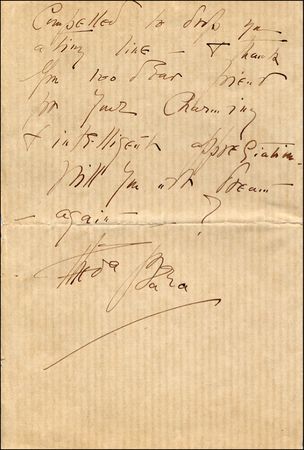 Compelled to drop you
a tiny line - & thank
you too dear friend
for your Charming
& intelligent appreciation -
Will you not
- again - ?
Theda Bara